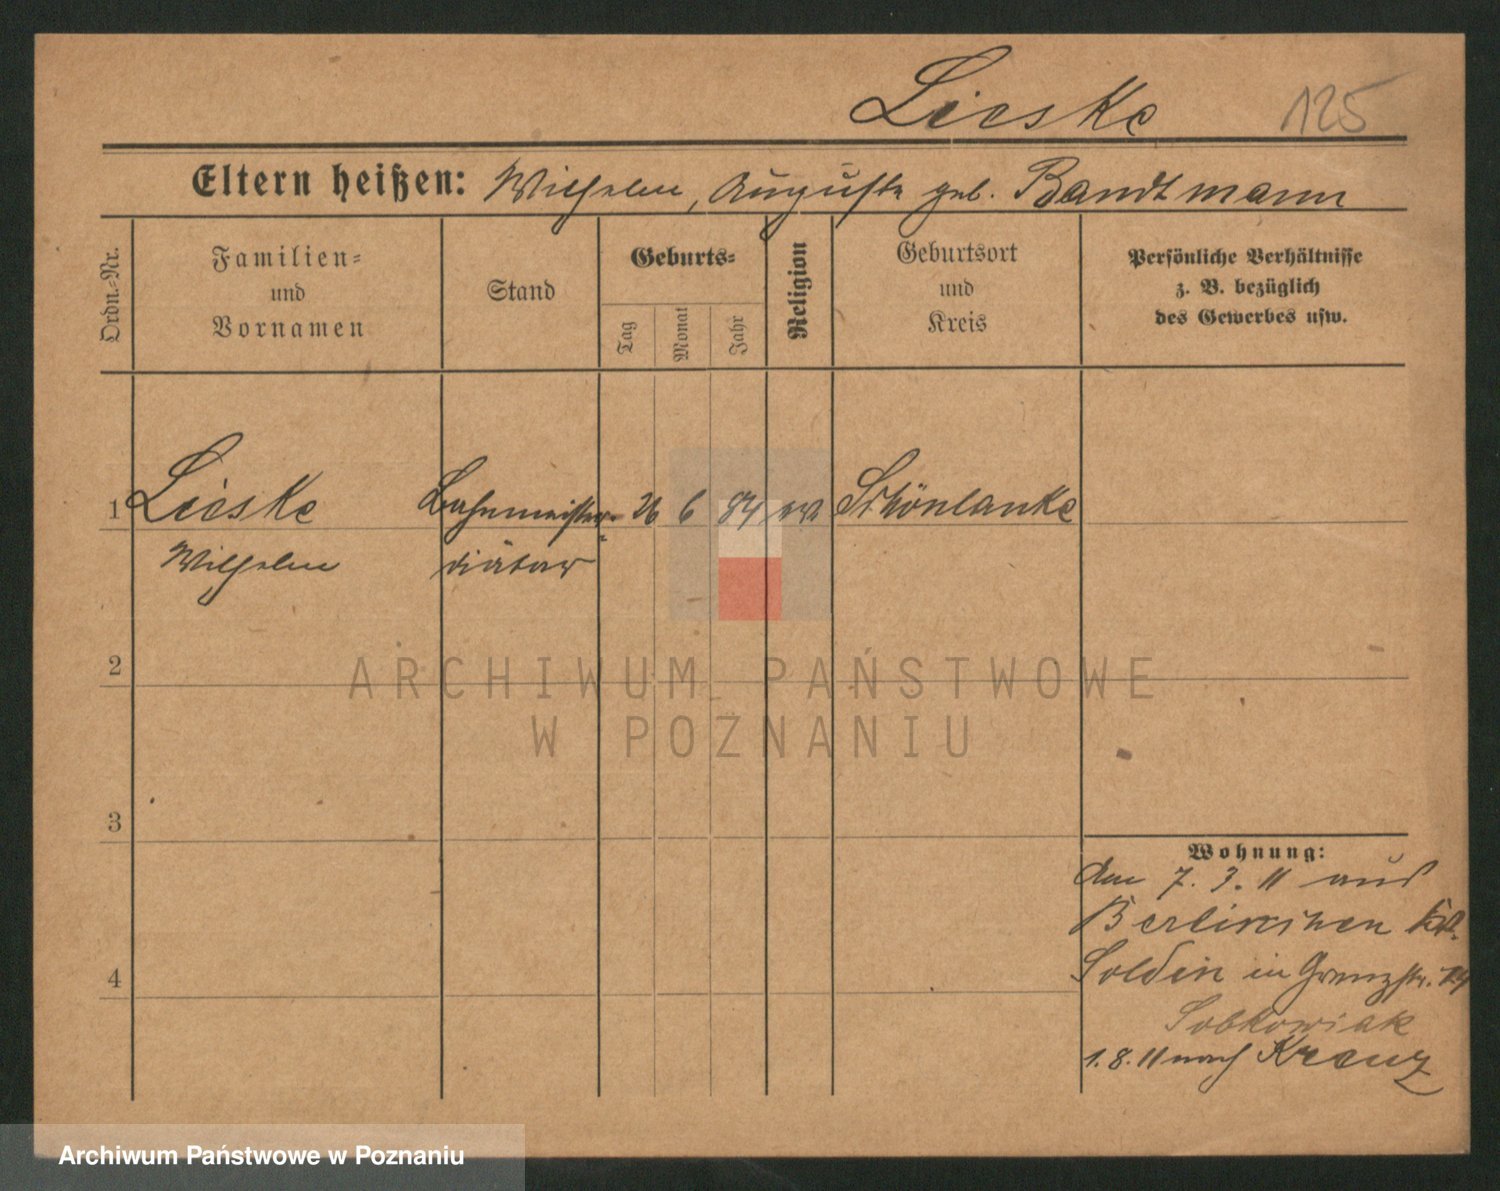 Lieske 125
Eltern heißen: Wilhelm, Auguste geb. Bandtmann
Ordn.-Nr.
Familien-
und
Vornamen
Stand
Geburts-
Tag
Monat
Jahr
Religion
Geburtsort
und
Kreis
Persönliche Verhältnisse
z. B. bezüglich
des Gewerbes usw.
1 Lieske Bahnmeister- 26 6 84 ev Schönlanke
Wilhelm diätar
2
3
4
Wohnung:
Am 7. 3. 11 aus
Berlinchen Kr.
Soldin in Grenzstr. 14
Sobkowiak
1. 8. 11 nach Kreuz
ARCHIWUM PAŃSTWOWE
W POZNANIU
Archiwum Państwowe w Poznaniu